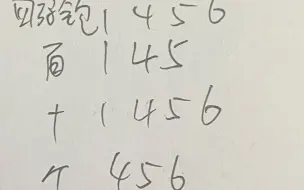 包1 4 5 6
百 1 4 5
十 1 4 5 6
个 4 5 6